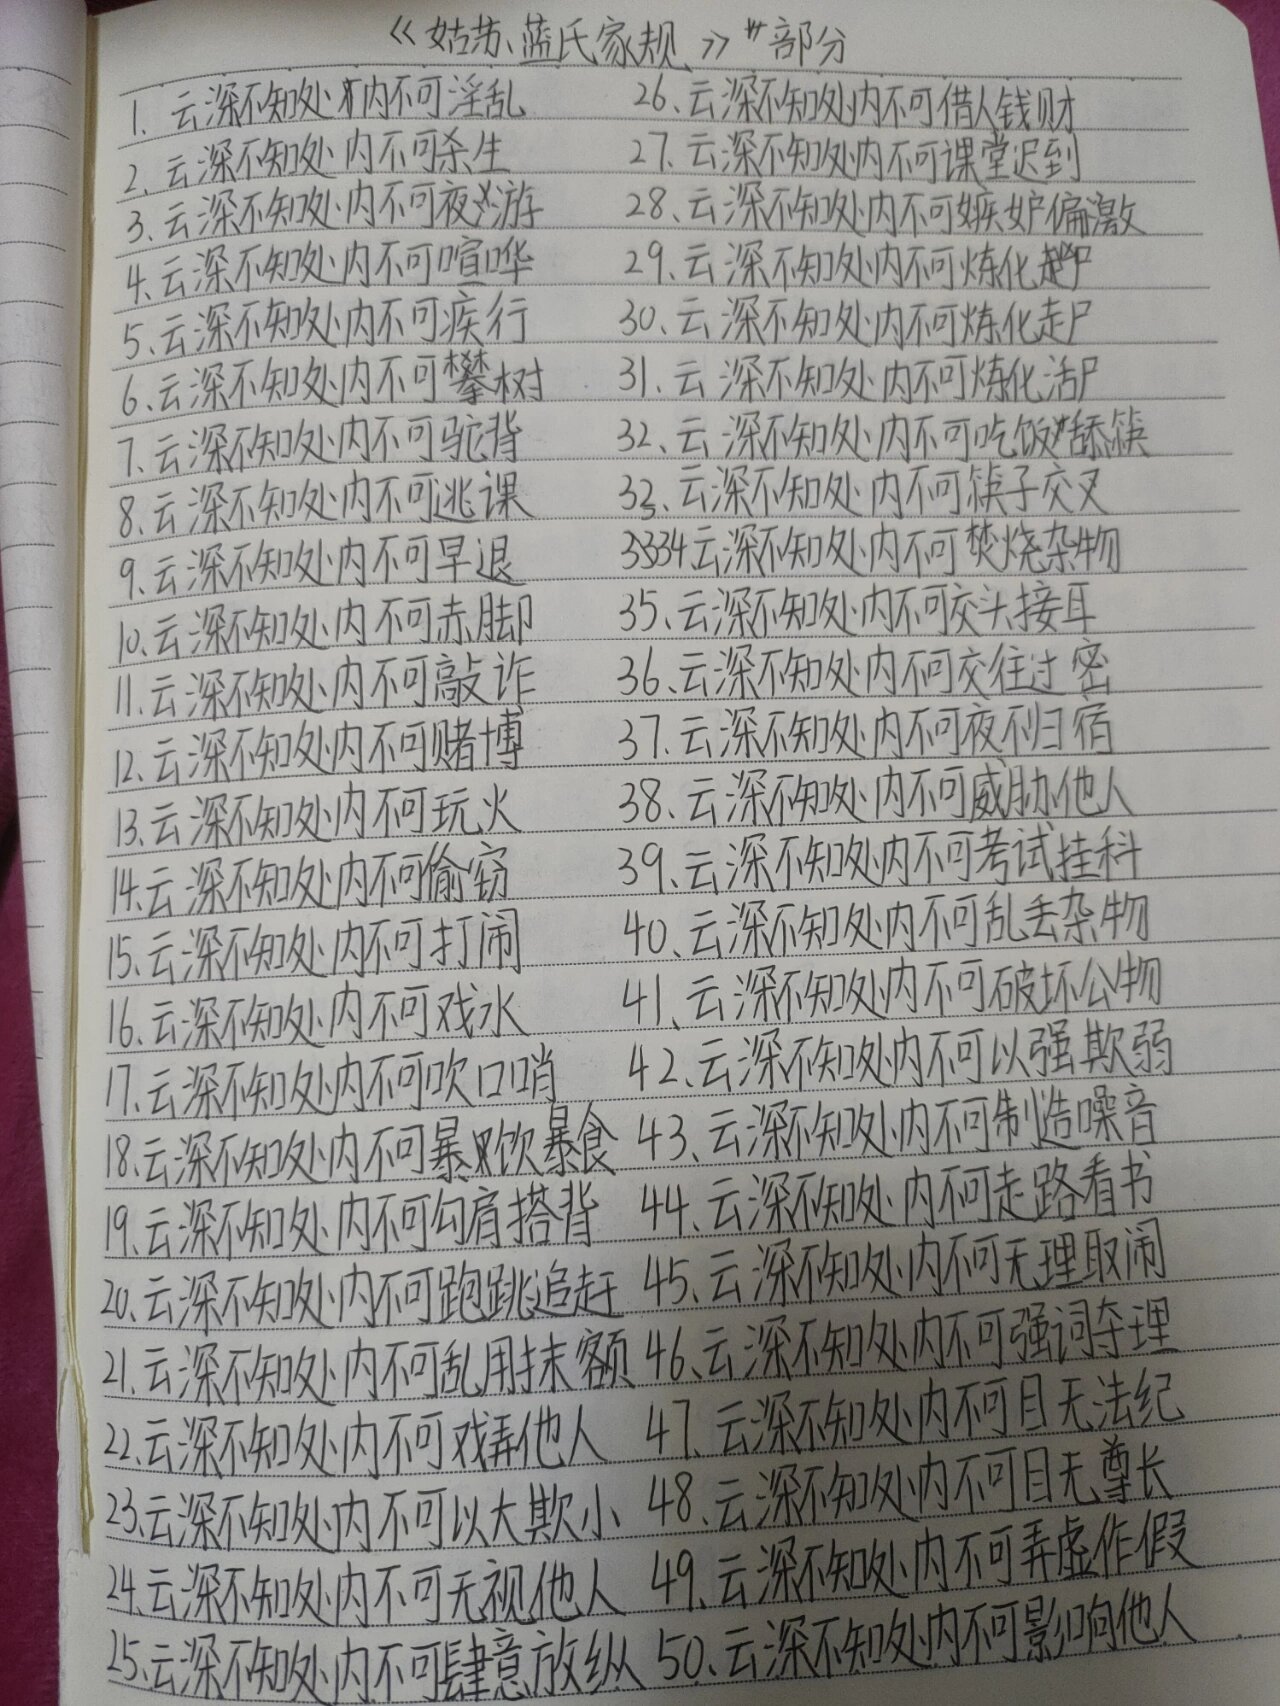 《姑苏、蓝氏家规》部分
1、云深不知处内不可淫乱
2、云深不知处内不可杀生
3、云深不知处内不可夜游
4、云深不知处内不可喧哗
5、云深不知处内不可疾行
6、云深不知处内不可攀树
7、云深不知处内不可驼背
8、云深不知处内不可逃课
9、云深不知处内不可早退
10、云深不知处内不可赤脚
11、云深不知处内不可敲诈
12、云深不知处内不可赌博
13、云深不知处内不可玩火
14、云深不知处内不可偷窃
15、云深不知处内不可打闹
16、云深不知处内不可戏水
17、云深不知处内不可吹口哨
18、云深不知处内不可暴饮暴食
19、云深不知处内不可勾肩搭背
20、云深不知处内不可跑跳追赶
21、云深不知处内不可乱用抹额
22、云深不知处内不可戏弄他人
23、云深不知处内不可以大欺小
24、云深不知处内不可无视他人
25、云深不知处内不可肆意放纵
26、云深不知处内不可借人钱财
27、云深不知处内不可课堂迟到
28、云深不知处内不可嫉妒偏激
29、云深不知处内不可炼化尸
30、云深不知处内不可炼化走尸
31、云深不知处内不可炼化活尸
32、云深不知处内不可吃饭舔筷
33、云深不知处内不可筷子交叉
3334云深不知处内不可焚烧杂物
35、云深不知处内不可交头接耳
36、云深不知处内不可交往过密
37、云深不知处内不可夜不归宿
38、云深不知处内不可威胁他人
39、云深不知处内不可考试挂科
40、云深不知处内不可乱丢杂物
41、云深不知处内不可破坏公物
42、云深不知处内不可以强欺弱
43、云深不知处内不可制造噪音
44、云深不知处内不可走路看书
45、云深不知处内不可无理取闹
46、云深不知处内不可强词夺理
47、云深不知处内不可目无法纪
48、云深不知处内不可目无尊长
49、云深不知处内不可弄虚作假
50、云深不知处内不可影响他人